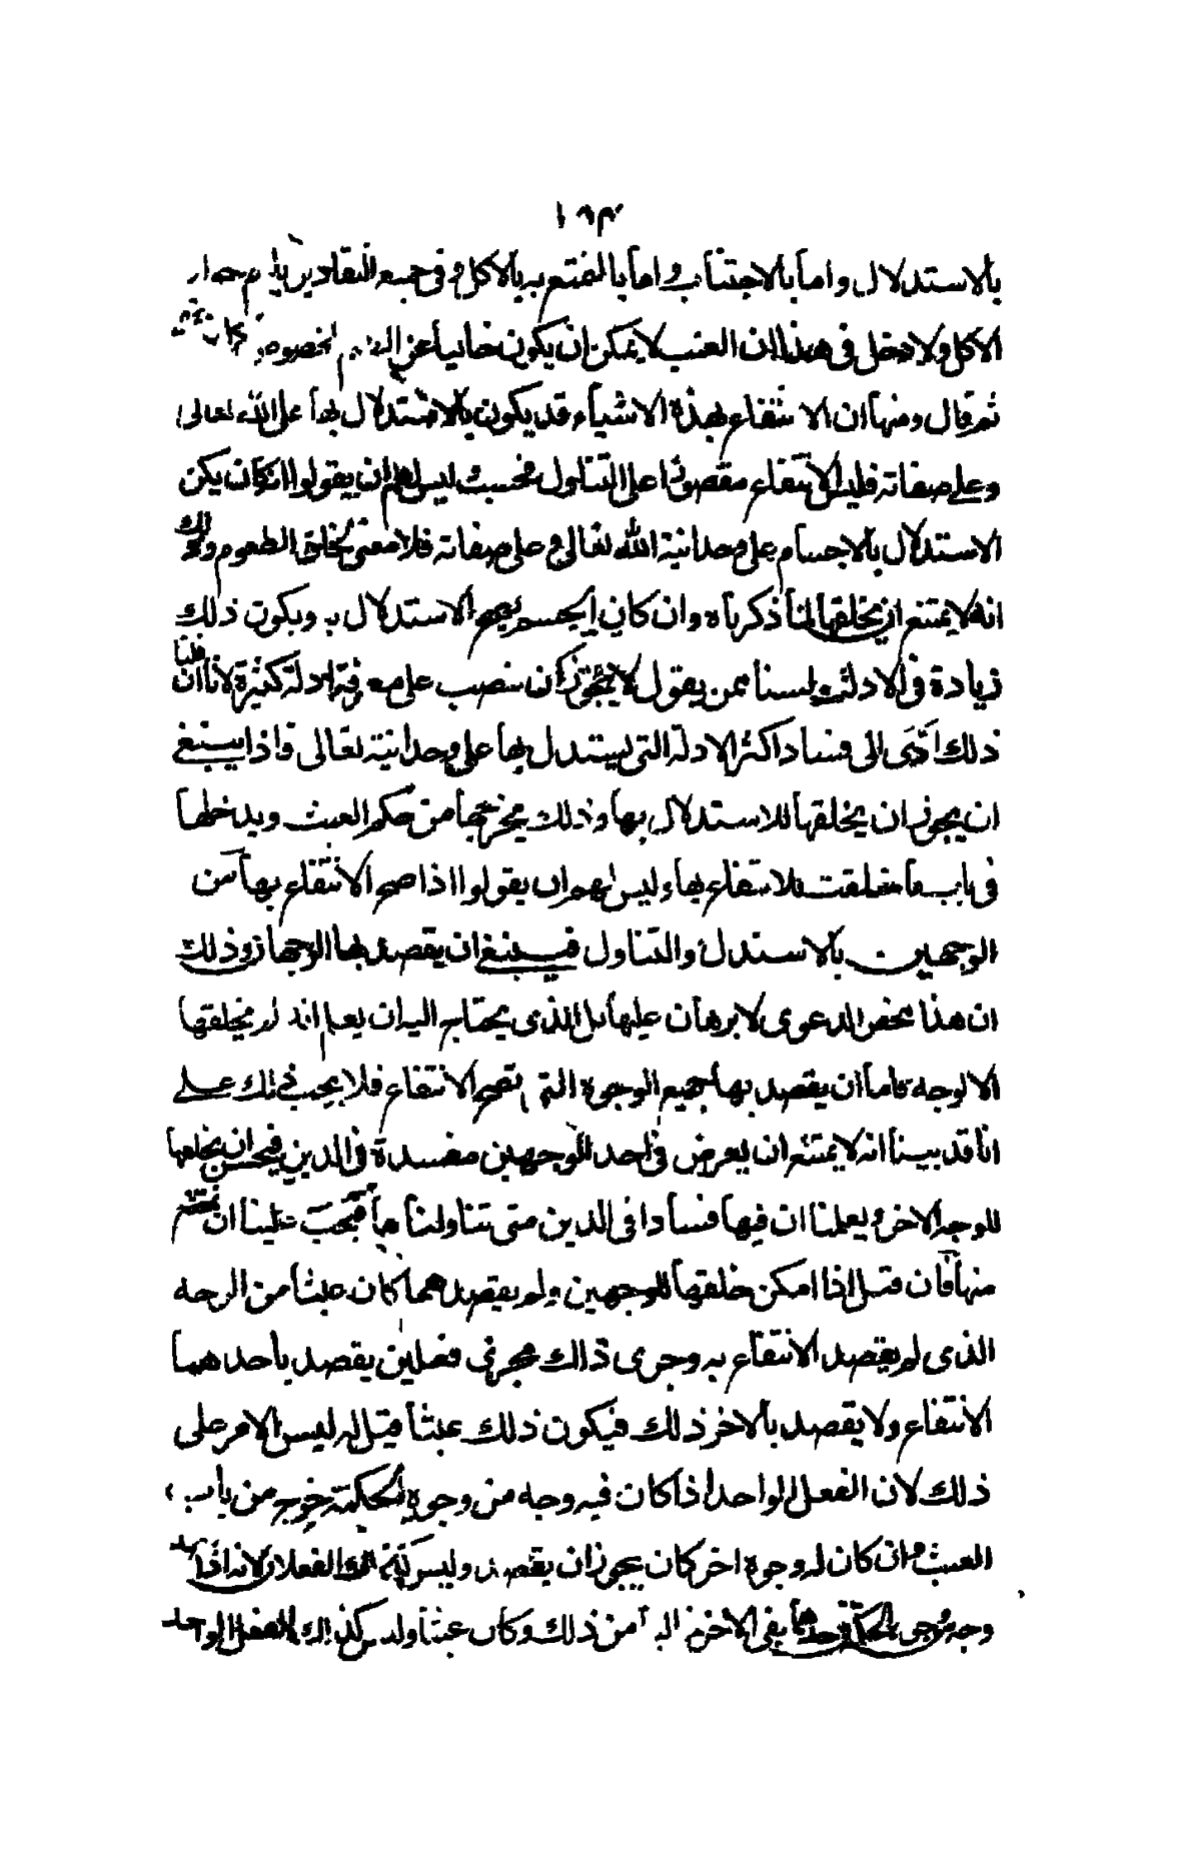 ١٥٣
بالاستدلال واما بالاجتناب واما بالتمتع به بالاكل و فى جميع التقادير
الاكل ولا دخل فى هذا ان العتب لا يمكن ان يكون خاليا عن
ثم قال ومنها ان الانتفاع بهذه الاشياء قد يكون بالاستدلال بها على الله تعالى
وعلى صفاته فليس الانتفاع مقصورا على التناول فحسب وليس لهم ان يقولوا ان كان يمكن
الاستدلال بالاجسام على وحدانية الله تعالى و على صفاته فلا معنى لخلق الطعوم وذلك
انه لا يمتنع ان يخلقها لما ذكرناه وان كان الجسم يصح الاستدلال به ويكون ذلك
زيادة فى الادلة ولسنا ممن يقول لا يجوز ان ينصب على معرفته ادلة كثيرة لانا ان قلنا
ذلك ادّى الى فساد اكثر الادلة التى يستدل بها على وحدانيته تعالى فاذا ينبغى
ان يجوز ان يخلقها للاستدلال بها وذلك يخرجها من حكم العبث ويدخلها
فى باب ما خلقت للانتفاع بها وليس لهم ان يقولوا اذا صح الانتفاع بها من
الوجهين بالاستدلال والتناول فينبغى ان يقصد بها الوجهان وذلك
ان هذا محض الدعوى لا برهان عليها بل الذى يحتاج اليه ان يعلم انه لم يخلقها
الا لوجه فاما ان يقصد بها جميع الوجوه التى تصح الانتفاع فلا يجب ذلك على
انا قد بينا انه لا يمتنع ان يعرض فى احد الوجهين مفسدة فى الدين فيحسن ان يخلقها
للوجه الاخر ويعلمنا ان فيها فسادا فى الدين متى تناولناها فيجب علينا ان نمتنع
منها فان قيل اذا امكن خلقها للوجهين ولم يقصدهما كان عبثا من الوجه
الذى لم يقصد الانتفاع به وجرى ذالك مجرى فعلين يقصد باحدهما
الانتفاع ولا يقصد بالاخر ذلك فيكون ذلك عبثا قيل له ليس الامر على
ذلك لان الفعل الواحد اذا كان فيه وجه من وجوه الحكمة خرج من باب
العبث وان كان له وجوه اخر كان يجوز ان يقصد وليس كذلك الفعلان لانه اذا
وجه بقى الاخر من ذلك وكان عبثا وليس كذلك الفعل الواحد